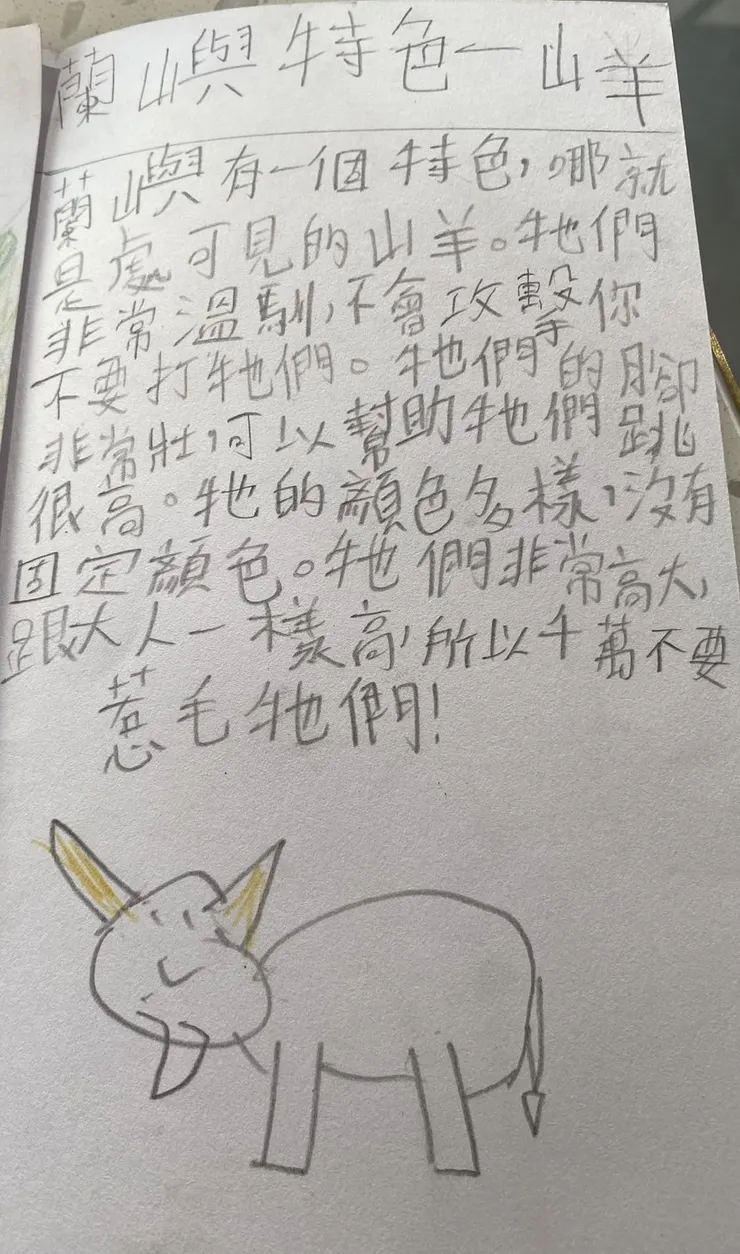 蘭嶼特色－山羊
蘭嶼有一個特色，哪就
是處可見的山羊。牠們
非常溫馴，不會攻擊你
不要打牠們。牠們的腳
非常壯，可以幫助牠們跳
很高。牠的顏色多樣，沒有
固定顏色。牠們非常高大，
跟大人一樣高，所以千萬不要
惹毛牠們！